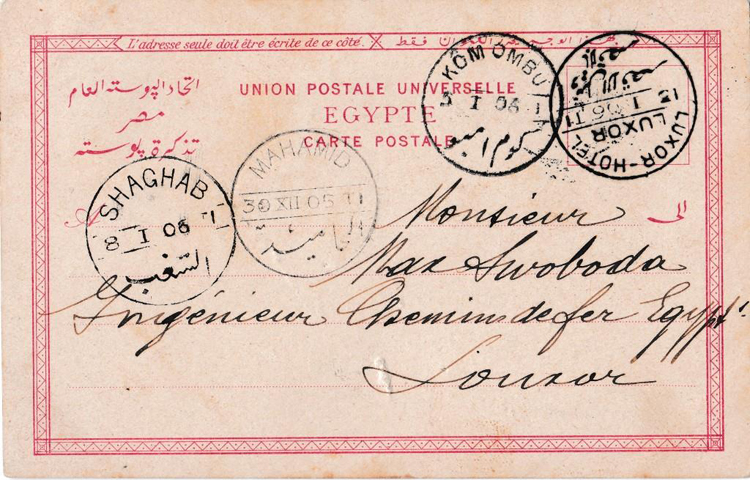 L'adresse seule doit être écrite de ce côté.
اتحاد البوسته العام
مصر
تذكرة بوسته
UNION POSTALE UNIVERSELLE
EGYPTE
CARTE POSTALE
KOM OMBU
3 I 06
كوم امبو
LUXOR-HOTEL
LUXOR
MAHAMID
30 XII 05
SHAGHAB
8 I 06
الشغب
الى
Monsieur
Max Swoboda
Ingénieur Chemins de fer Egypt.
Louxor